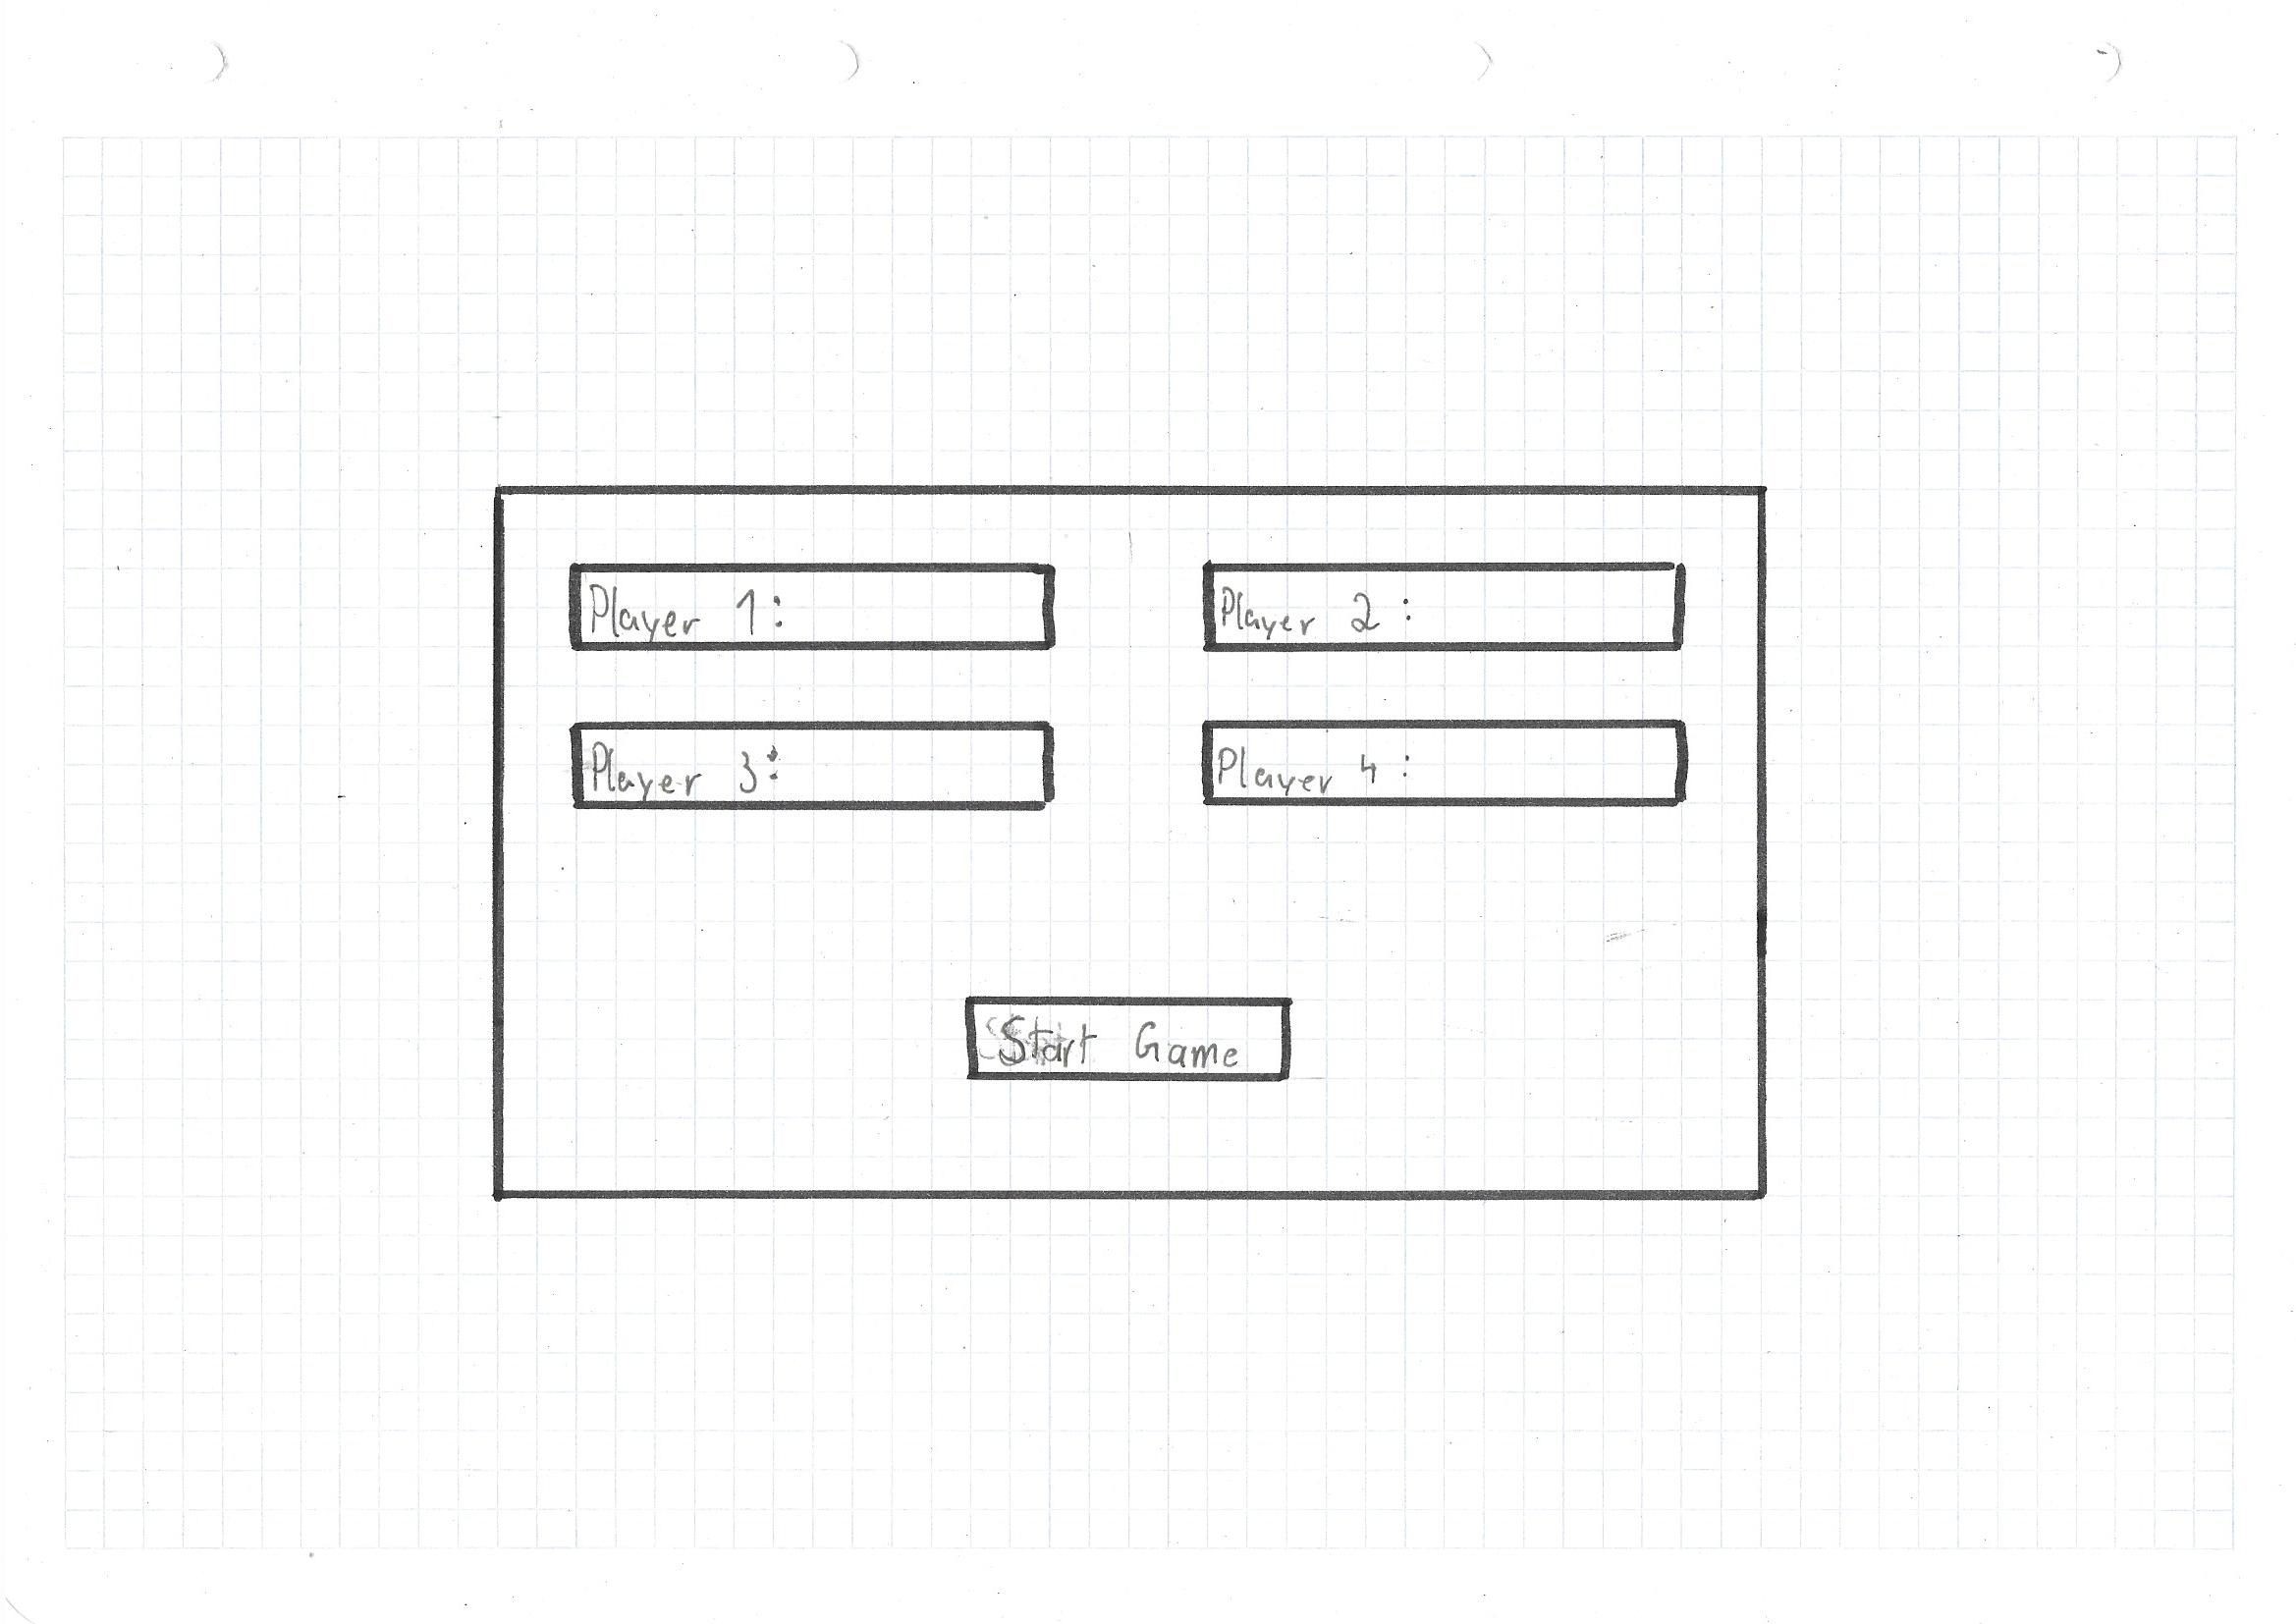 Player 1:
Player 2:
Player 3:
Player 4:
Start Game